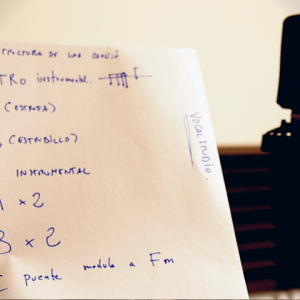 TRUCTURA DE UNA CANCIÓ
TRO instrumental..
(ESTROFA)
(ESTRIBILLO)
INSTRUMENTAL
x 2
3 x 2
puente modula a Fm
VOCALSTUDIO.